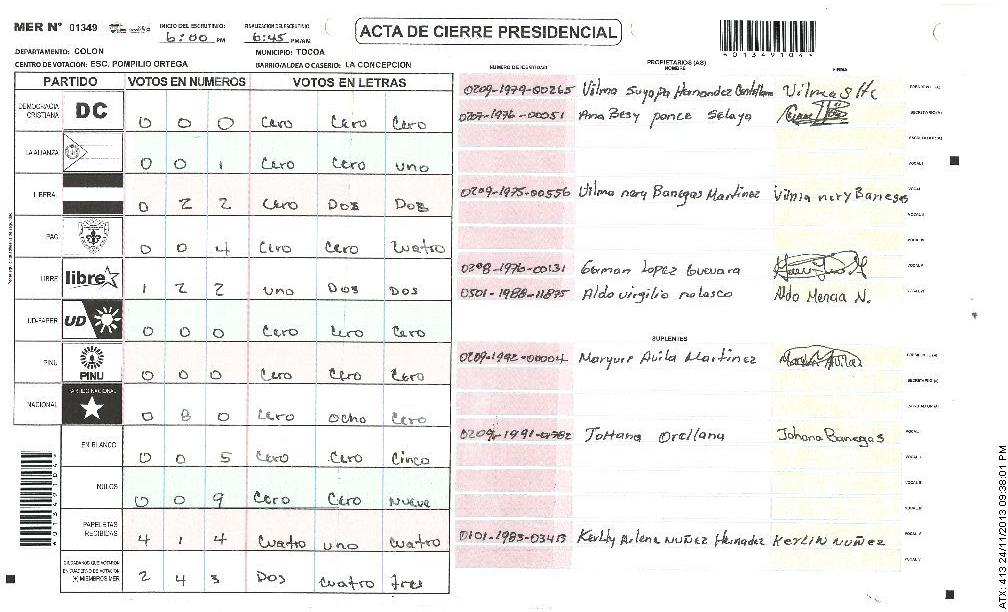 MER Nº 01349
INICIO DEL ESCRUTINIO: 6:00 PM
FINALIZACION DEL ESCRUTINIO 6:45 PM/AM
ACTA DE CIERRE PRESIDENCIAL
4013491044
DEPARTAMENTO: COLON
MUNICIPIO: TOCOA
CENTRO DE VOTACION: ESC. POMPILIO ORTEGA
BARRIO/ALDEA O CASERIO: LA CONCEPCION
PARTIDO VOTOS EN NUMEROS VOTOS EN LETRAS
DEMOCRACIA CRISTIANA DC 0 0 0 Cero Cero Cero
LA ALIANZA 0 0 1 Cero Cero uno
LIBERAL 0 2 2 Cero Dos Dos
PAC 0 0 4 Cero Cero Cuatro
LIBRE libre 1 2 2 uno Dos Dos
UD-FAPER UD 0 0 0 Cero Cero Cero
PINU PINU 0 0 0 Cero Cero Cero
NACIONAL PARTIDO NACIONAL 0 8 0 Cero ocho Cero
EN BLANCO 0 0 5 Cero Cero Cinco
NULOS 0 0 9 Cero Cero Nueve
PAPELETAS RECIBIDAS 4 1 4 Cuatro uno Cuatro
CIUDADANOS QUE VOTARON EN CUADERNO DE VOTACION (+) MIEMBROS MER 2 4 3 Dos cuatro tres
NUMERO DE IDENTIDAD
PROPIETARIOS (AS)
NOMBRE
FIRMA
0209-1979-00265 Vilma Suyapa Hernandez Vilma
0207-1976-00051 Ana Besy ponce Selaya
0209-1975-00556 Vilma nery Banegas Martinez Vilma nery Banegas
0208-1976-00131 German Lopez Guevara
0501-1988-11875 Aldo virgilio nolasco Aldo Mencia N.
SUPLENTES
0209-1992-00004 Maryuri Avila Martinez
0209-1991- Johana Orellana Johana Banegas
0101-1983-03413 Arlene NUÑEZ KERLIN NUÑEZ
ATX: 413 24/11/2013 09:38:01 PM